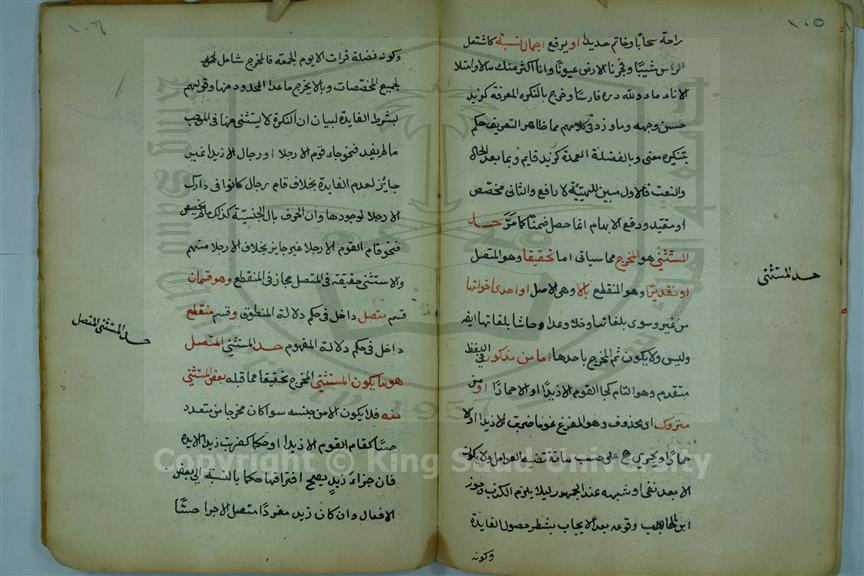 ١٠٥
راحة سحابا وخاتم حديدا او يرفع اجمال نسبة كاشتعل
الراس شيبا وفجرنا الارض عيونا وانا اكثر منك مالا وامتلا
الاناء ماء ولله دره فارسا وخرج بالنكره المعرفة كزيد
حسن وجهه وما ورد في كلامهم مما ظاهره التعريف حكم
بتنكيره معنى وبالفضلة العمدة كزيد قايم وبما بعد الحال
والنعت فالاول مبين للهيئة لا رافع والثاني مخصص
او مقيد ورفع الابهام انما حصل ضمنا كما مر حد
المستثنى هو المخرج مما سياتي اما تحقيقا وهو المتصل
او تقديرا وهو المنقطع بالا وهي الاصل او احدى اخواتها
من غير وسوى بلغاتها وخلا وعدا وحاشا بلغاتها ايضا
وليس ولا يكون ثم المخرج باحدها اما من مذكور في اللفظ
متقدم وهو التام كجا القوم الا زيدا او الا حمارا او من
متروك اى محذوف وهو المفرغ نحو ما ضربت الا زيدا او الا
حمارا ويجري على حسب ما تقتضيه العوامل ولا يكون
الا بعد نفي او شبهه عند الجمهور ليلا يلزم الكذب وجوز
ابن الحاجب وقوعه بعد الايجاب بشطر حصول الفايدة
وكونه
حد المستثنى
١٠٦
وكونه فضلة قرات الا يوم الجمعه فالمخرج شامل
لجميع المخصصات وبالا يخرج ما عدا المحدود منها وقولهم
بشرط الفايدة لبيان ان النكرة لا يستثنى منها في الموجب
ما لم يفيد فنحو جاء قوم الا رجلا او رجال الا زيدا غير
جايز لعدم الفايدة بخلاف قام رجال كانوا في دارك
الا رجلا لوجودها وان المعرف بال الجنسية كذلك ما لم يخصص
فنحو قام القوم الا رجلا غير جايز بخلاف الا رجلا منهم
والاستثنى حقيقه في المتصل مجاز في المنقطع وهو قسمان
قسم متصل داخل في حكم دلالة المنطوق وقسم منقطع
داخل في حكم دلالة المفهوم حد المستثنى المتصل
هو ما يكون المستثنى المخرج تحقيقا مما قبله بعض المستثنى
منه فلا يكون الا من جنسه سوا كان مخرجا من متعدد
حسا كقام القوم الا زيدا او حكما زيدا الا يده
فان جزاء زيد يصح افتراقها حكما بالنسبة الى بعض
الافعال وان كان زيد مفردا متصل الاجزا حسا
حد المستثنى المتصل
Copyright © King Saud University